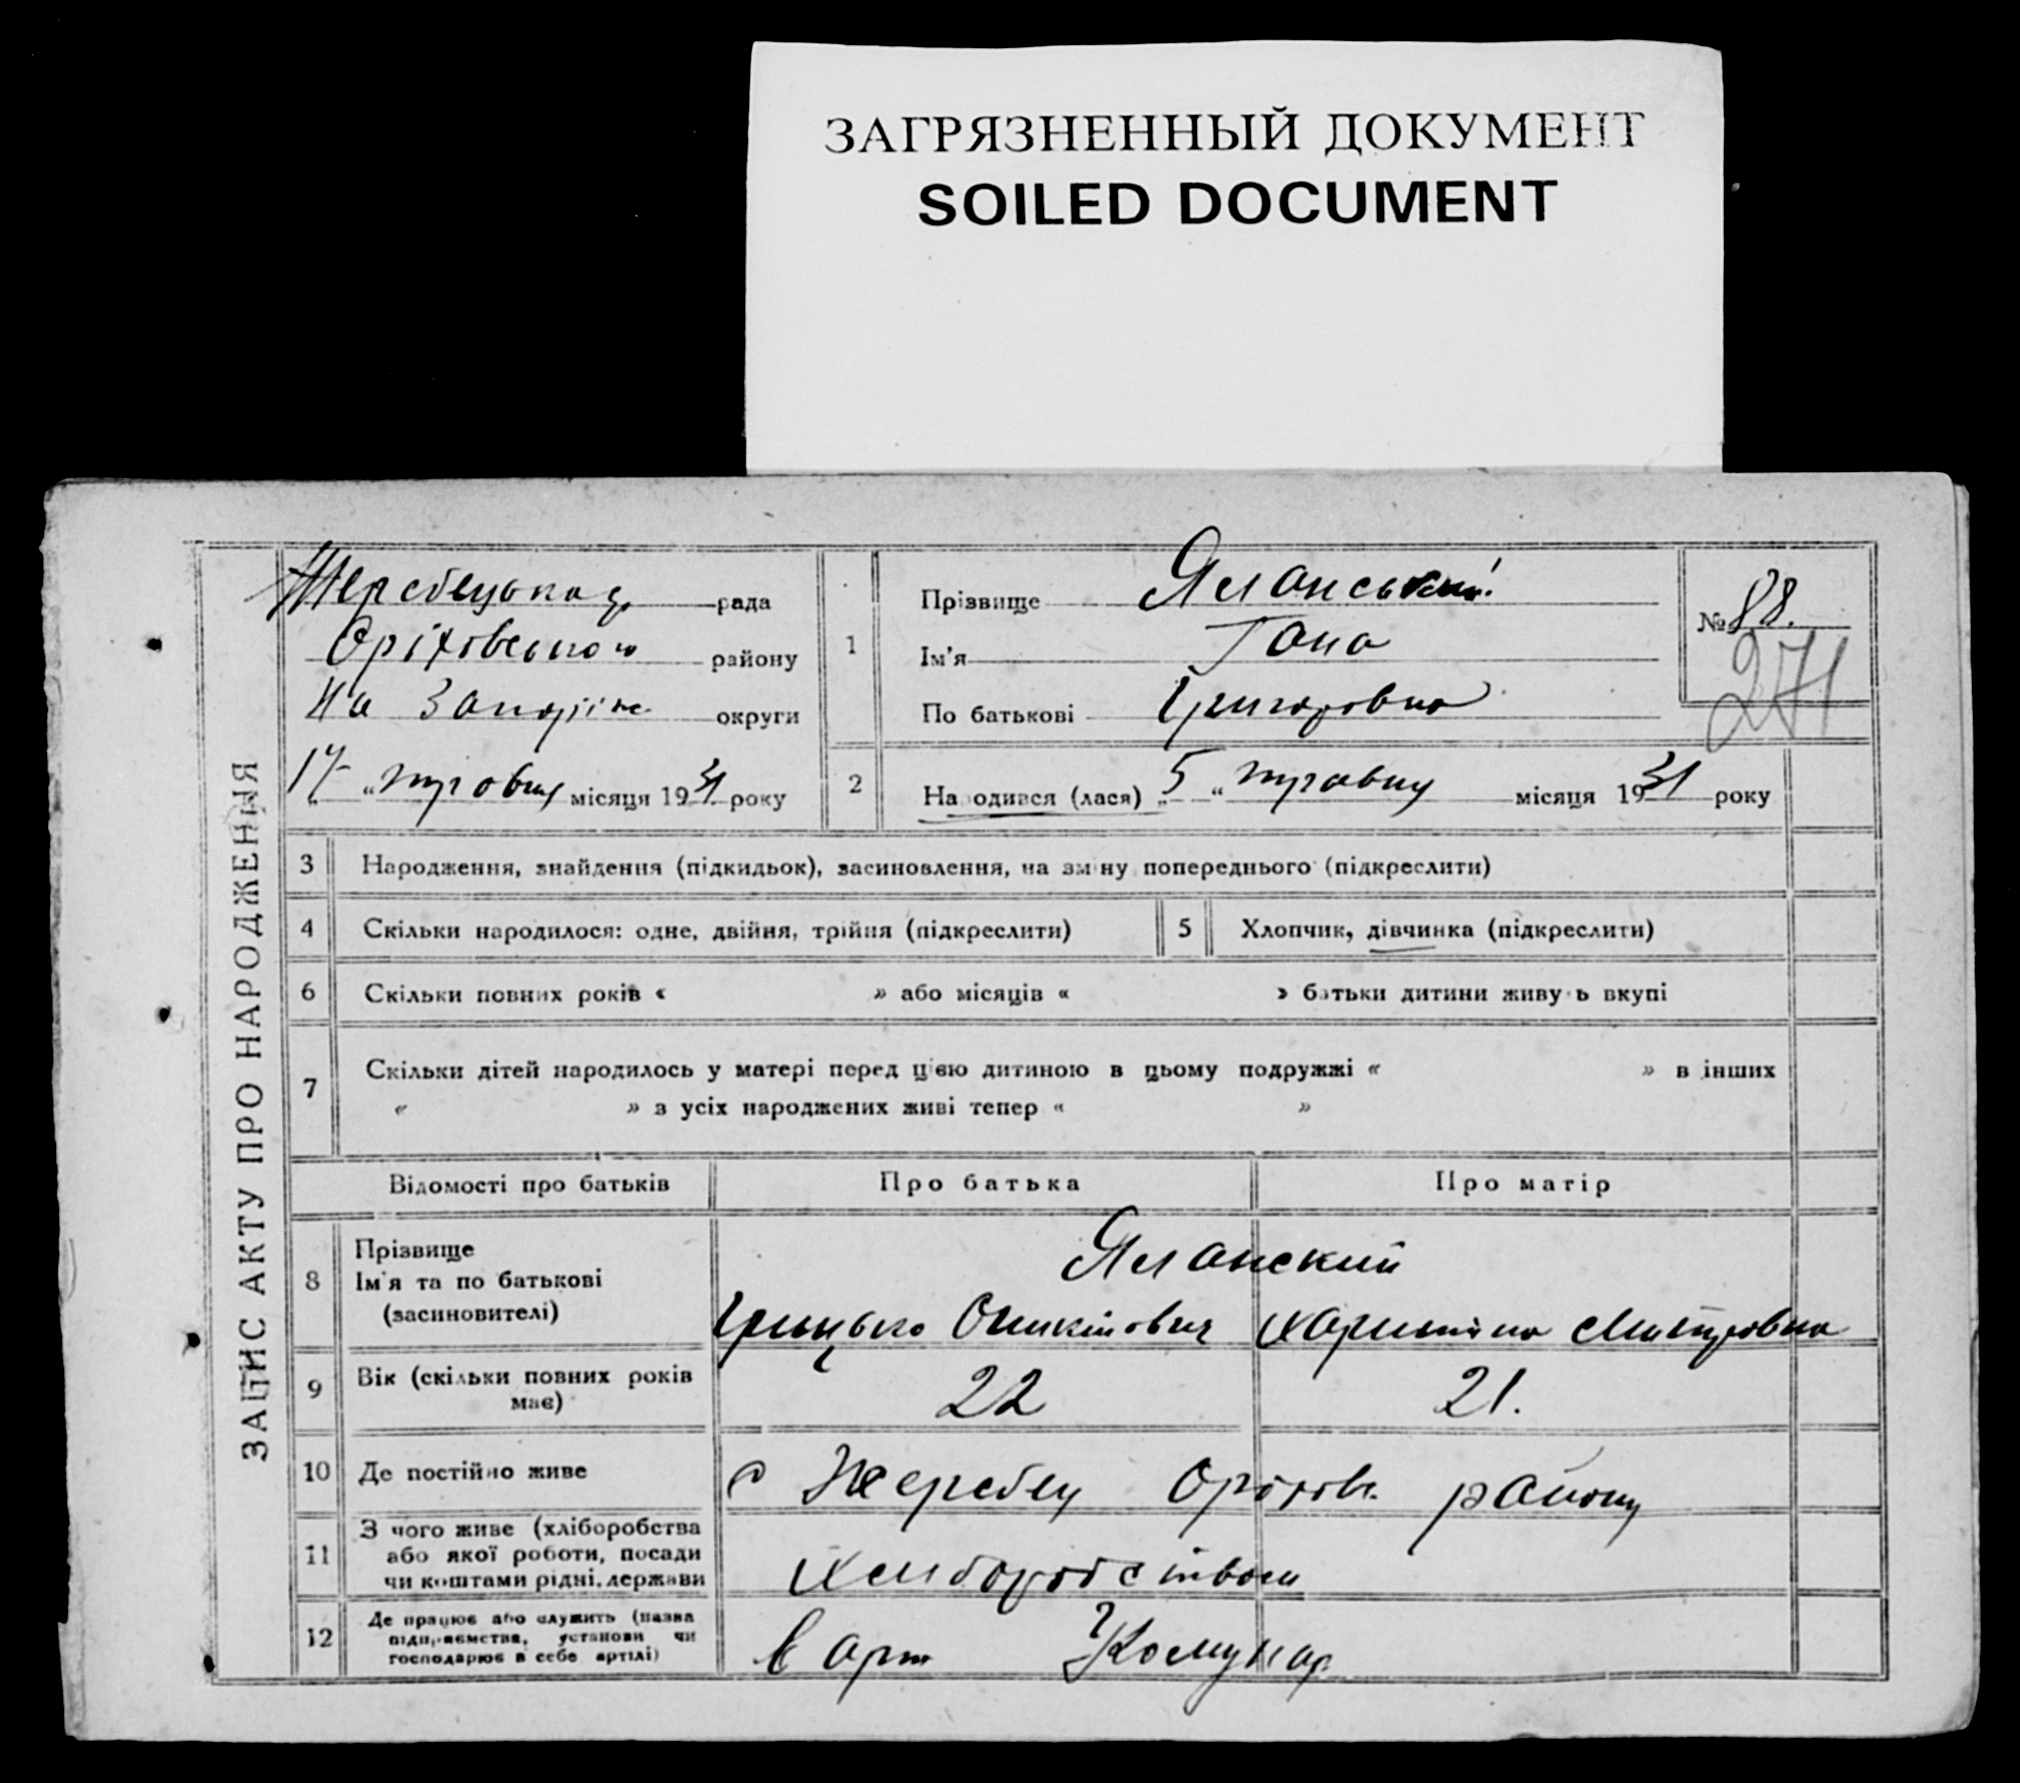 ЗАГРЯЗНЕННЫЙ ДОКУМЕНТ
SOILED DOCUMENT
ЗАПИС АКТУ ПРО НАРОДЖЕННЯ
Жеребецька рада
Оріхівського району
На Запоріж. округи
17 „ “ травня місяця 1931 року
1
Прізвище Яланський
Ім'я Гана
По батькові Григоровна
№ 88.
271
2 Народився (лася) „ 5 “ травня місяця 1931 року
3 Народження, знайдення (підкидьок), засиновлення, на зміну попереднього (підкреслити)
4 Скільки народилося: одне, двійня, трійня (підкреслити) 5 Хлопчик, дівчинка (підкреслити)
6 Скільки повних років « » або місяців « » батьки дитини живуть вкупі
7 Скільки дітей народилось у матері перед цією дитиною в цьому подружжі « » в інших
« » з усіх народжених живі тепер « »
Відомості про батьків Про батька Про матір
8 Прізвище Яланский
Ім'я та по батькові
(засиновителі) Грицько Оникійович Харитина Митровна
9 Вік (скільки повних років має) 22 21.
10 Де постійно живе с Жеребец Оріхов. району
11 З чого живе (хліборобства
або якої роботи, посади
чи коштами рідні, держави хліборобством
12 Де працює або служить (назва
підприємства, установи чи
господарює в себе артілі) в арт Комунар